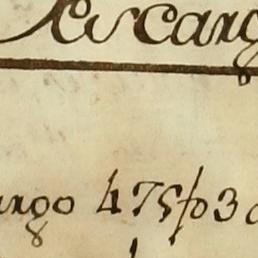 Descarg
argo 475p3